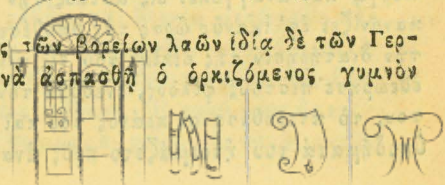 ς τῶν βορείων λαῶν ἰδίᾳ δὲ τῶν Γερ-
νὰ ἀσπασθῇ ὁ ὁρκιζόμενος γυμνὸν